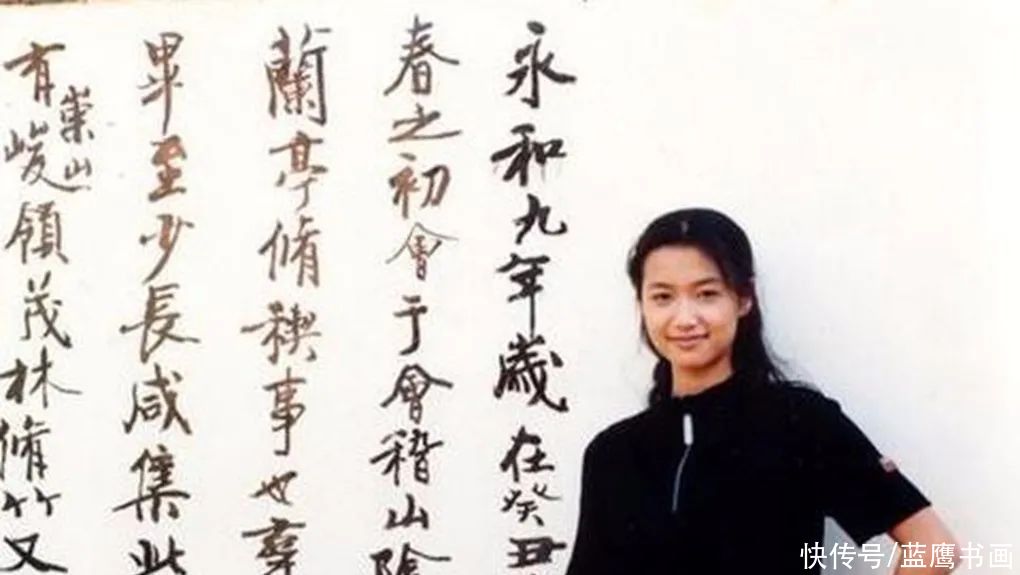 永和九年歲在癸丑
春之初會于會稽山陰
蘭亭脩禊事也羣
畢至少長咸集此
有崇山峻領茂林脩竹又
快传号/蓝鹰书画